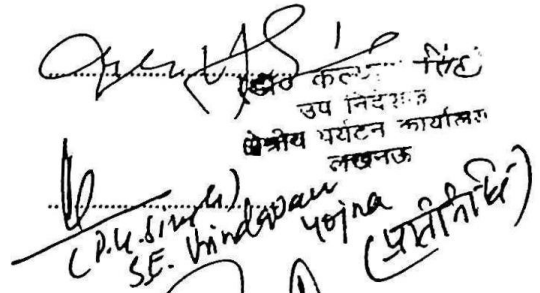 कल्याण सिंह
उप निदेशक
क्षेत्रीय पर्यटन कार्यालय
लखनऊ
(P.K. Singh)
S.E. Vrindavan Yojna
(प्रतिनिधि)